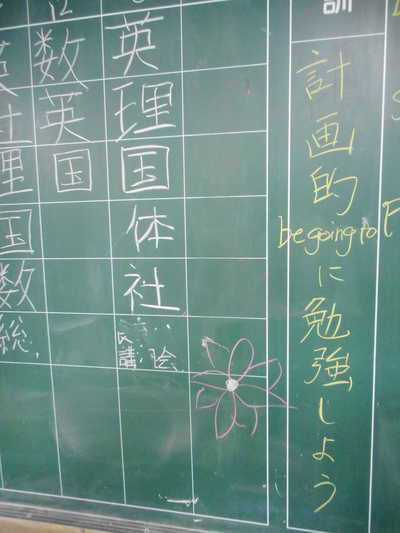 訓
計画的
be going to
に勉強しよう
英
理
国
体
社
講 会
数
英
国
英
社
理
国
数
総